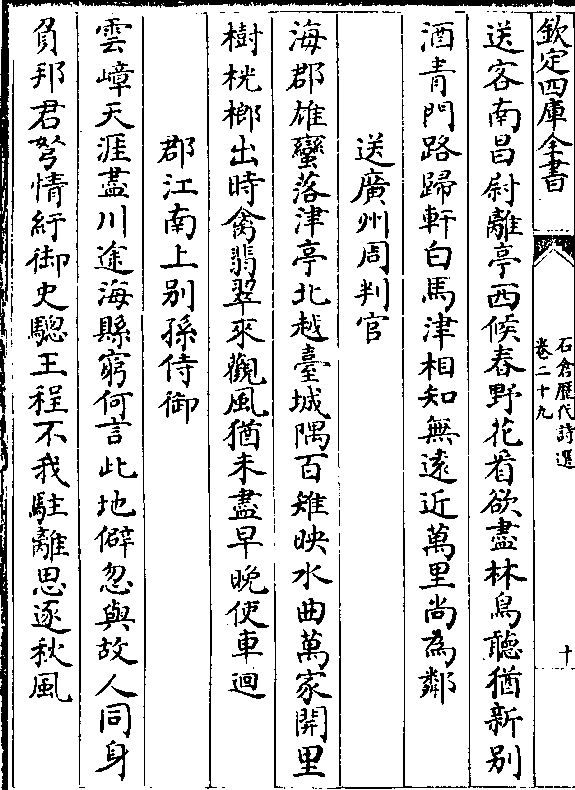 欽定四庫全書
石倉歷代詩選
卷二十九
十
送客南昌尉離亭西候春野花看欲盡林鳥聽猶新别
酒青門路歸軒白馬津相知無遠近萬里尚為鄰
送廣州周判官
海郡雄蠻落津亭北越臺城隅百雉映水曲萬家開里
樹桄榔出時禽翡翠來觀風猶未盡早晚使車迴
郡江南上别孫侍御
雲嶂天涯盡川途海縣窮何言此地僻忽與故人同身
負邦君弩情紆御史驄王程不我駐離思逐秋風